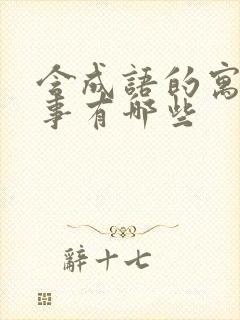 含成語的寓
事有哪些
辭十七